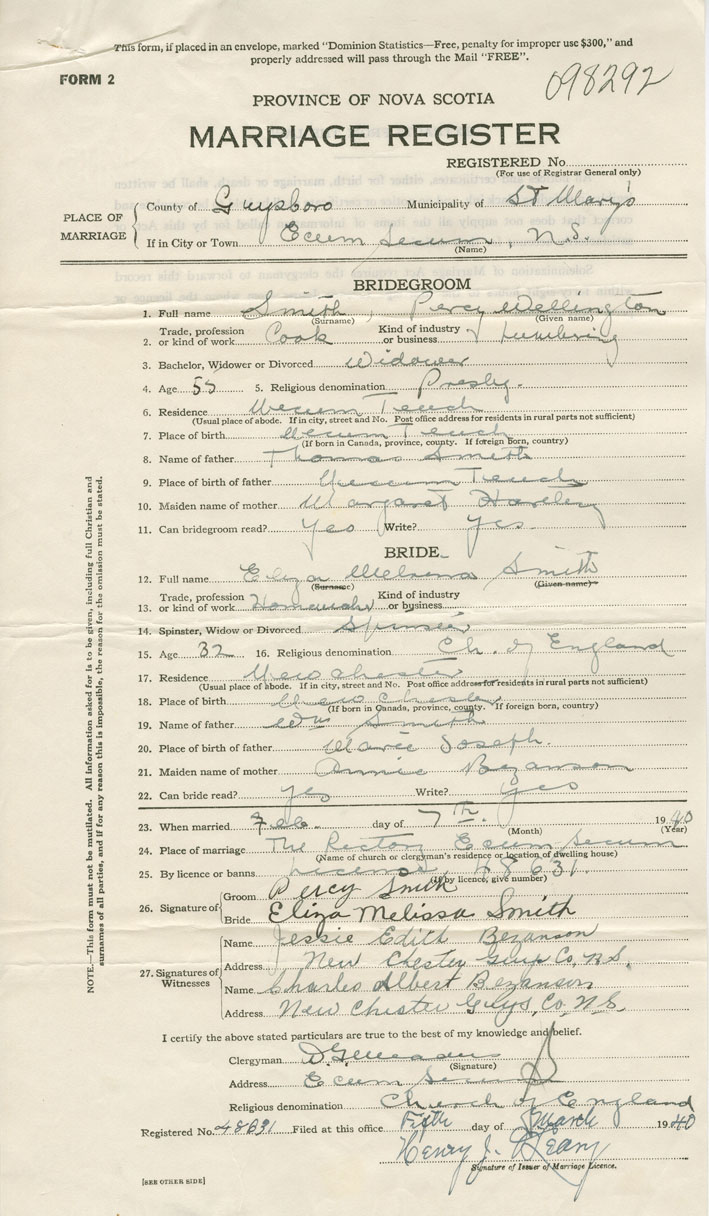 This form, if placed in an envelope, marked "Dominion Statistics—Free, penalty for improper use $300," and
properly addressed will pass through the Mail "FREE".
FORM 2
098292
PROVINCE OF NOVA SCOTIA
MARRIAGE REGISTER
REGISTERED No.
(For use of Registrar General only)
PLACE OF MARRIAGE
County of Guysboro Municipality of St Mary's
If in City or Town Ecum Secum, N.S.
(Name)
BRIDEGROOM
1. Full name Smith, Percy Wellington
(Surname) (Given name)
2. Trade, profession or kind of work Cook Kind of industry or business Lumbering
3. Bachelor, Widower or Divorced Widower
4. Age 55 5. Religious denomination Presby.
6. Residence Necum Teuch
(Usual place of abode. If in city, street and No. Post office address for residents in rural parts not sufficient)
7. Place of birth Necum Teuch
(If born in Canada, province, county. If foreign born, country)
8. Name of father Thomas Smith
9. Place of birth of father Necum Teuch
10. Maiden name of mother Margaret Hartling
11. Can bridegroom read? Yes Write? Yes.
BRIDE
12. Full name Eliza Smith
(Surname) (Given name)
13. Trade, profession or kind of work Kind of industry or business
14. Spinster, Widow or Divorced Spinster
15. Age 32 16. Religious denomination Ch. of England
17. Residence New Chester
(Usual place of abode. If in city, street and No. Post office address for residents in rural parts not sufficient)
18. Place of birth New Chester
(If born in Canada, province, county. If foreign born, country)
19. Name of father Wm Smith
20. Place of birth of father Marie Joseph.
21. Maiden name of mother Annie Bezanson
22. Can bride read? Yes Write? Yes
23. When married Feb. day of 7th. 1940
(Month) (Year)
24. Place of marriage The Rectory Ecum Secum
(Name of church or clergyman's residence or location of dwelling house)
25. By licence or banns License, 48631.
(If by licence, give number)
26. Signature of
Groom Percy Smith
Bride Eliza Melissa Smith
27. Signatures of Witnesses
Name Jessie Edith Bezanson
Address New Chester Guys Co. N.S.
Name Charles Albert Bezanson
Address New Chester Guys. Co. N.S.
I certify the above stated particulars are true to the best of my knowledge and belief.
Clergyman
(Signature)
Address Ecum Secum
Religious denomination Church of England
Registered No. 48631 Filed at this office day of March 1940
Henry J.
Signature of Issuer of Marriage Licence.
[SEE OTHER SIDE]
NOTE.—This form must not be mutilated. All information asked for is to be given, including full Christian and
surnames of all parties, and if for any reason this is impossible, the reason for the omission must be stated.